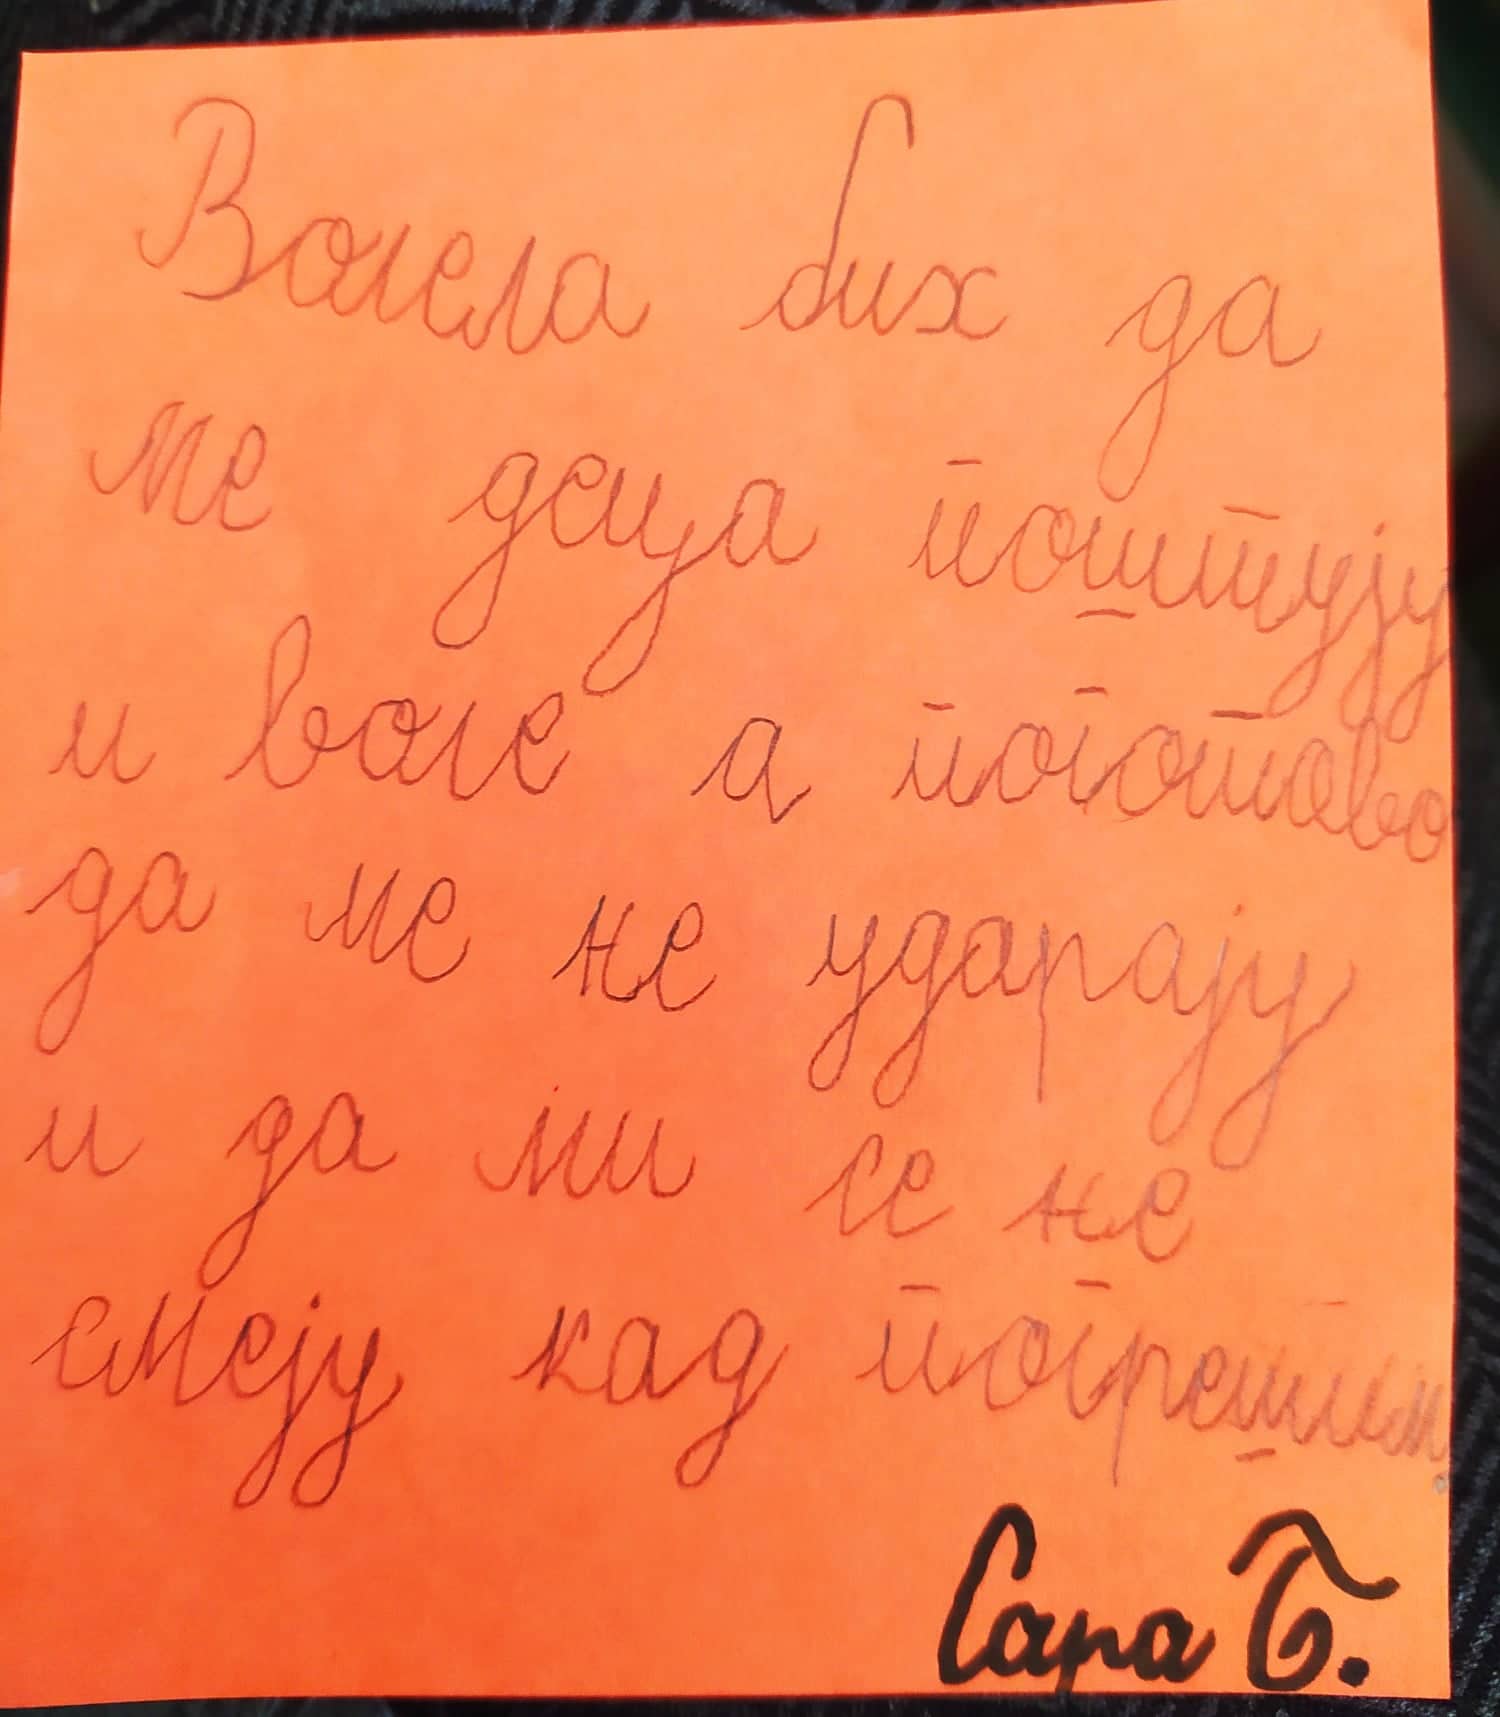 Волела бих да
ме деца поштују
и воле а поготово
да ме не ударају
и да ми се не
смеју кад погрешим.
Сара Б.